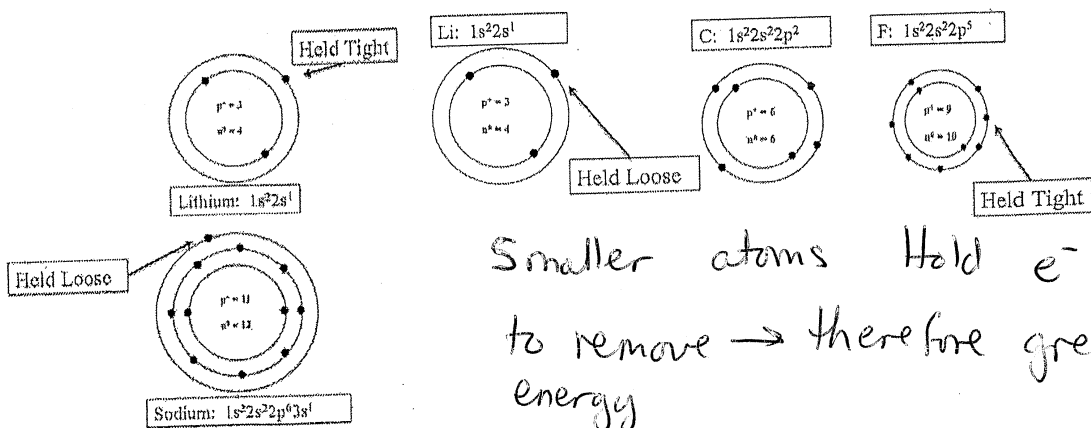 Held Tight
p⁺ = 3
n⁰ = 4
Lithium: 1s²2s¹
Held Loose
p⁺ = 11
n⁰ = 12
Sodium: 1s²2s²2p⁶3s¹
Li: 1s²2s¹
p⁺ = 3
n⁰ = 4
Held Loose
C: 1s²2s²2p²
p⁺ = 6
n⁰ = 6
F: 1s²2s²2p⁵
= 9
n⁰ = 10
Held Tight
Smaller atoms Hold e⁻
to remove → therefore gre
energy